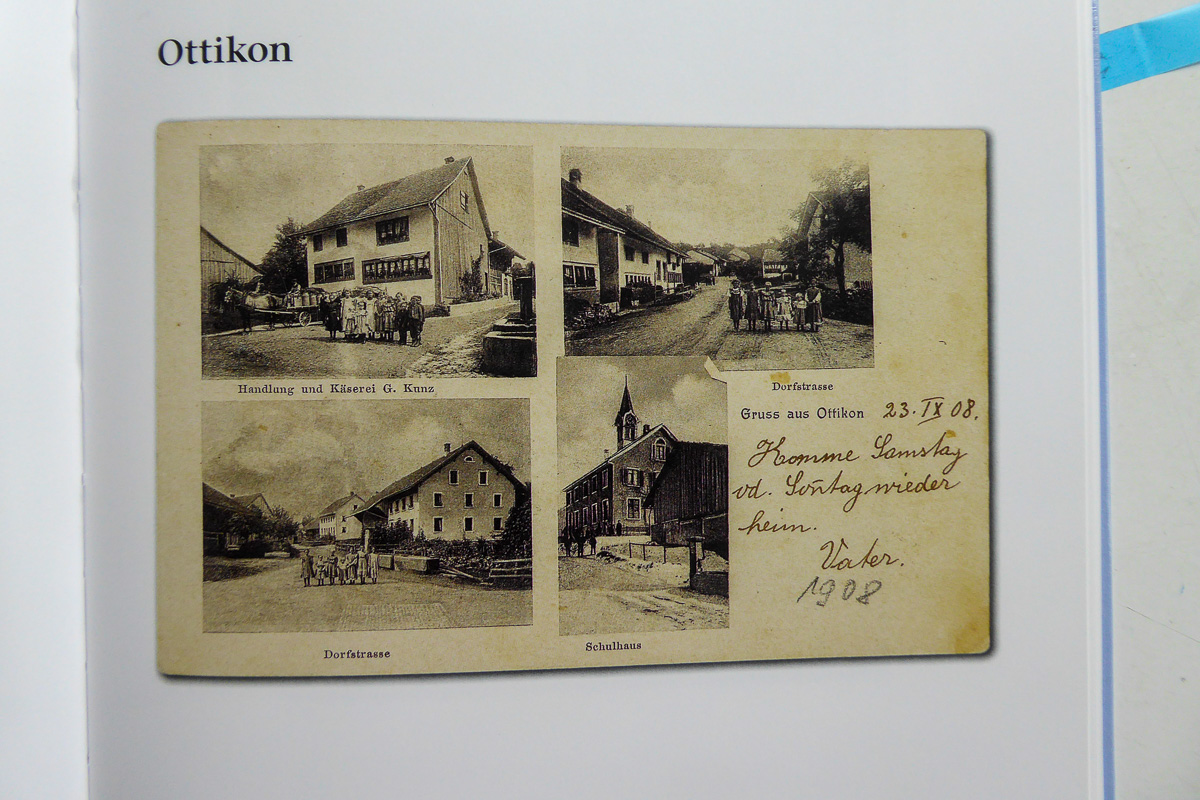 Ottikon
Handlung und Käserei G. Kunz
Dorfstrasse
Gruss aus Ottikon 23. IX 08.
Komme Samstag
od. Son̄tag wieder
heim.
Vater.
1908
Dorfstrasse
Schulhaus